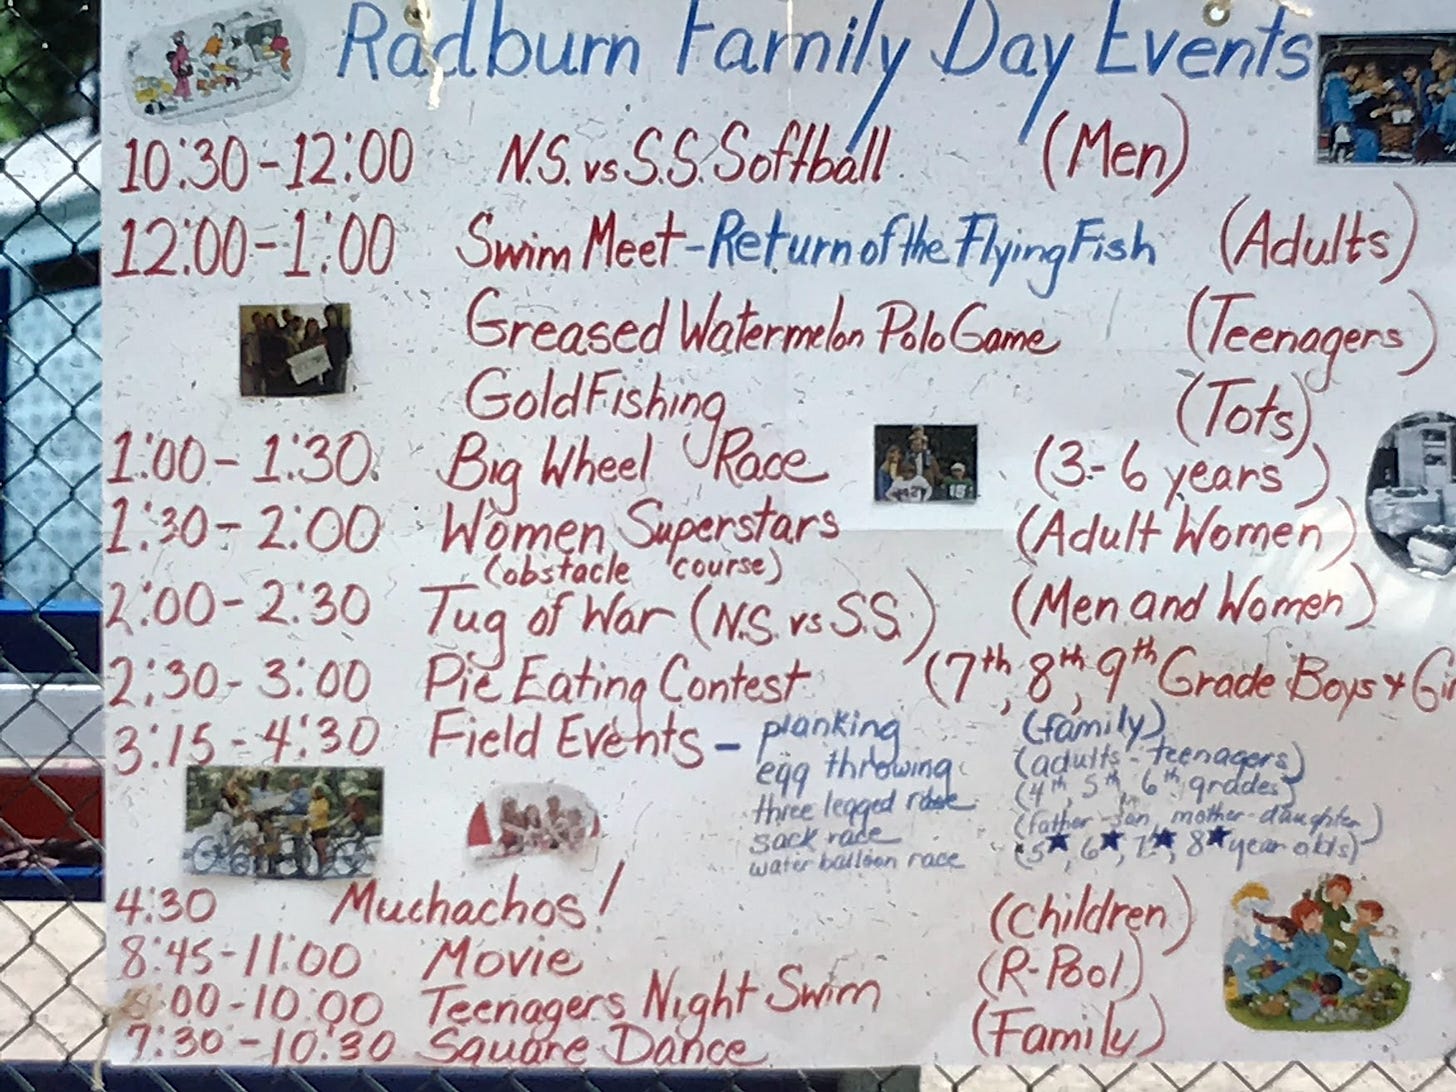 Radburn Family Day Events
10:30-12:00 N.S. vs S.S. Softball (Men)
12:00-1:00 Swim Meet-Return of the Flying Fish (Adults)
Greased Watermelon Polo Game (Teenagers)
Gold Fishing (Tots)
1:00-1:30 Big Wheel Race (3-6 years)
1:30-2:00 Women Superstars (Adult Women)
(obstacle course)
2:00-2:30 Tug of War (N.S. vs S.S.) (Men and Women)
2:30-3:00 Pie Eating Contest (7th, 8th, 9th Grade Boys +
3:15-4:30 Field Events - planking (family)
egg throwing (adults-teenagers)
three legged race (4th, 5th, 6th grades)
sack race (father-son, mother-daughter)
water balloon race (5★, 6★, 7★, 8★ year olds)
4:30 Muchachos! (Children)
8:45-11:00 Movie (R-Pool)
:00-10:00 Teenagers Night Swim
7:30-10:30 Square Dance (Family)